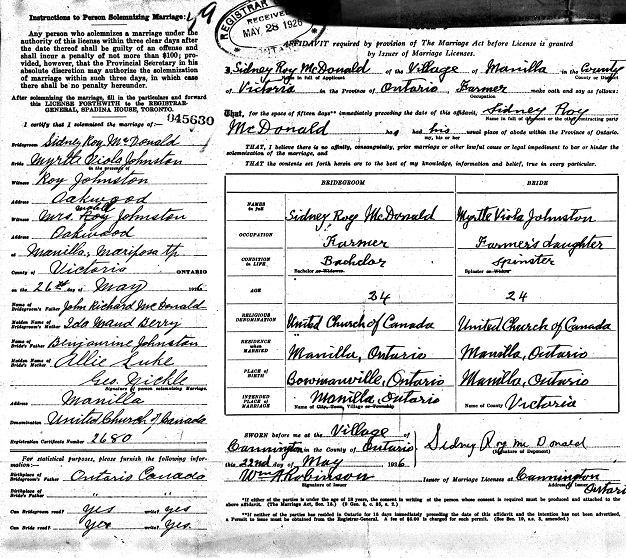 Instructions to Person Solemnizing Marriage:
Any person who solemnizes a marriage under
the authority of this license within three clear days after
the date thereof shall be guilty of an offense and
shall incur a penalty of not more than $100; pro-
vided, however, that the Provincial Secretary in his
absolute discretion may authorize the solemnization
of marriage within such three days, in which case
there shall be no penalty hereunder.
After solemnizing marriage, fill in the particulars and forward
this LICENSE FORTHWITH TO THE REGISTRAR-
GENERAL, SPADINA HOUSE, TORONTO.
045630
I certify that I solemnized the marriage of:—
Bridegroom Sidney Roy McDonald
Bride Myrtle Viola Johnston
in the presence of
Witness Roy Johnston
Address Oakwood
Witness Mrs. Roy Johnston
Address Oakwood
at Manilla, Mariposa tp
County of Victoria ONTARIO
on the 26th day of May 1926
Name of Bridegroom's Father John Richard McDonald
Maiden Name of Bridegroom's Mother Ida Maud Berry
Name of Bride's Father Benjamine Johnston
Maiden Name of Bride's Mother Allie Luke
Geo. Nickle
Signature of person solemnizing Marriage.
Address Manilla
Denomination United Church of Canada
Registration Certificate Number 2680
For statistical purposes, please furnish the following infor-
mation:—
Birthplace of Bridegroom's Father Ontario Canada
Birthplace of Bride's Father " "
Can Bridegroom read? yes write? yes.
Can Bride read? yes write? yes.
REGISTRAR
RECEIVED
MAY 28 1926
AFFIDAVIT required by provision of The Marriage Act before License is granted
by Issuer of Marriage Licenses.
I, Sidney Roy McDonald of the Village of Manilla in the County
Name in full of deponent County or District
of Victoria in the Province of Ontario, Farmer make oath and say as follows:
Occupation
That, for the space of fifteen days** immediately preceding the date of this affidavit, Sidney Roy
McDonald has had his usual place of abode within the Province of Ontario.
my, his or her
THAT, I believe there is no affinity, consanguinity, prior marriage or other lawful cause or legal impediment to bar or hinder the
solemnization of the marriage, and
THAT the contents set forth herein are to the best of my knowledge, information and belief, true in every particular.
BRIDEGROOM BRIDE
NAMES in full Sidney Roy McDonald Myrtle Viola Johnston
OCCUPATION Farmer Farmer's daughter
CONDITION IN LIFE. Bachelor Spinster
Bachelor or Widower. Spinster or Widow
AGE 24 24
RELIGIOUS DENOMINATION United Church of Canada United Church of Canada
RESIDENCE WHEN MARRIED Manilla, Ontario Manilla, Ontario
PLACE OF BIRTH Bowmanville, Ontario Manilla, Ontario
INTENDED PLACE OF MARRIAGE Manilla, Ontario Victoria
Name of City, Town, Village or Township Name of County
SWORN before me at the Village
of Cannington in the County of Ontario
this 22nd day of May 1926
Sidney Roy McDonald
(Signature of Deponent)
Wm A Robinson Issuer of Marriage Licenses at Cannington
Signature of Issuer Address of Issuer Ontario
*If either of the parties is under the age of 18 years, the consent in writing of the person whose consent is required must be produced and attached to the
above affidavit. (The Marriage Act, Sec. 16.)
**If neither of the parties has resided in Ontario for 15 days immediately preceding the date of this affidavit and the intention has not been advertised,
a Permit to issue must be obtained from the Registrar-General.